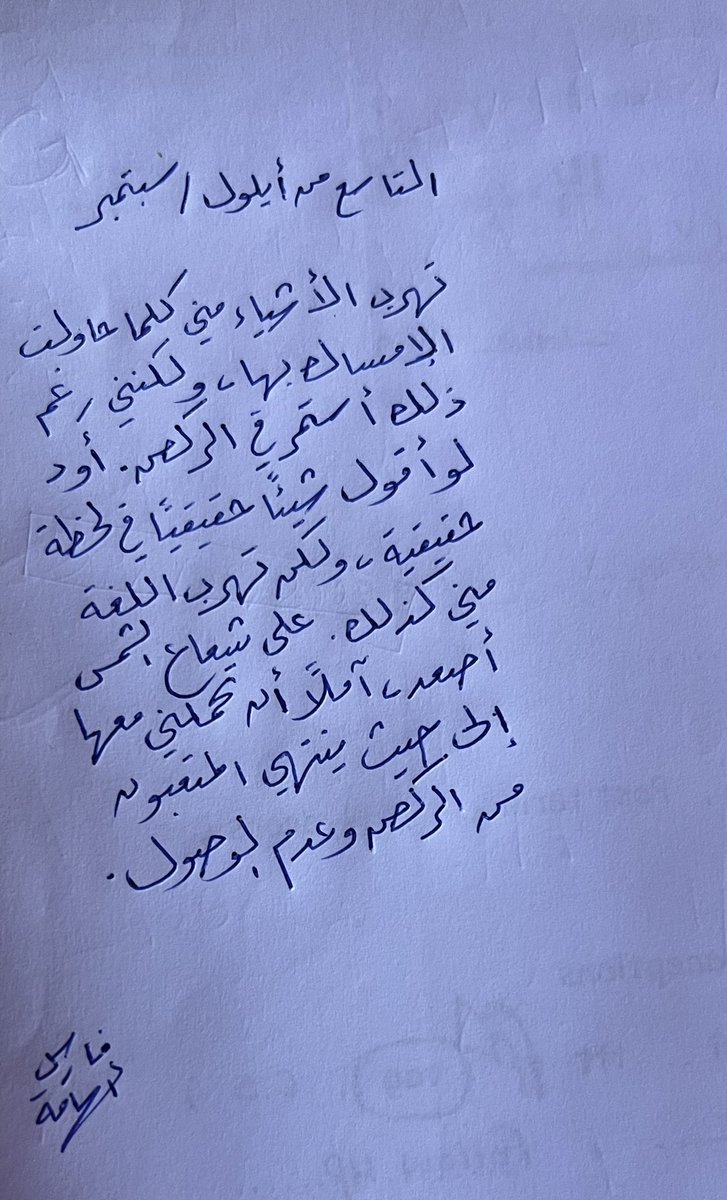 التاسع من أيلول / سبتمبر
تهرب الأشياء مني كلما حاولت
الإمساك بها، ولكنني رغم
ذلك أستمر في الركض. أود
لو أقول شيئًا حقيقيًا في لحظة
حقيقية، ولكن تهرب اللغة
مني كذلك. على شعاع الشمس
أصعد، آملًا أن تحملني معها
إلى حيث ينتهي المتعبون
من الركض وعدم الوصول.
فارس
أسامة